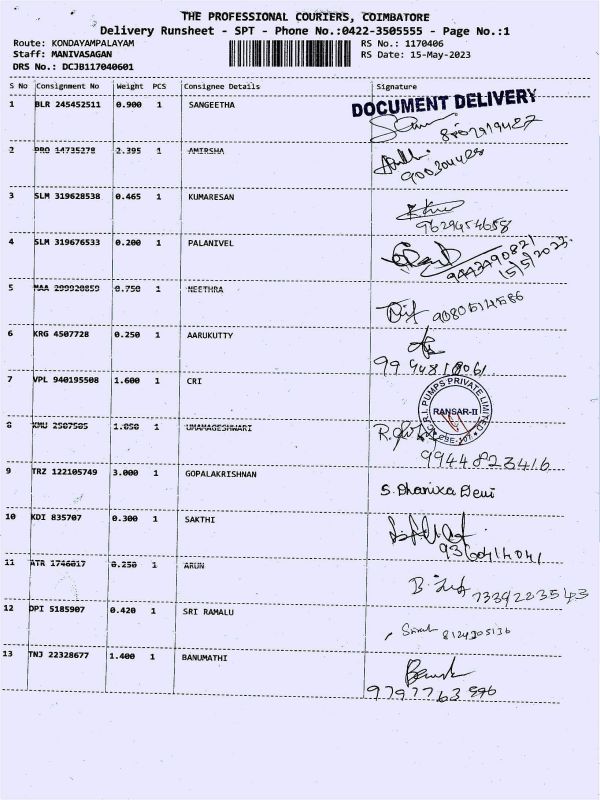 THE PROFESSIONAL COURIERS, COIMBATORE
Delivery Runsheet - SPT - Phone No.:0422-3505555 - Page No.:1
Route: KONDAYAMPALAYAM RS No.: 1170406
Staff: MANIVASAGAN RS Date: 15-May-2023
DRS No.: DCJB117040601
S No Consignment No Weight PCS Consignee Details Signature
DOCUMENT DELIVERY
1 BLR 245452511 0.900 1 SANGEETHA
2 PRO 14735278 2.395 1 AMIRSHA
3 SLM 319628538 0.465 1 KUMARESAN
9629454658
4 SLM 319676533 0.200 1 PALANIVEL
9442490821
15/5/2023.
5 MAA 299920859 0.750 1 NEETHRA
9080514586
6 KRG 4507728 0.250 1 AARUKUTTY
7 VPL 940195508 1.600 1 CRI
C.R.I. PUMPS PRIVATE LIMITED
RANSAR-II
8 KMU 2587585 1.050 1 UMAMAGESHWARI
9944823416
9 TRZ 122105749 3.000 1 GOPALAKRISHNAN
S. Dhanixa Devi
10 KDI 835707 0.300 1 SAKTHI
11 ATR 1746017 0.250 1 ARUN
7339223543
12 DPI 5185907 0.420 1 SRI RAMALU
8124205136
13 TNJ 22328677 1.400 1 BANUMATHI